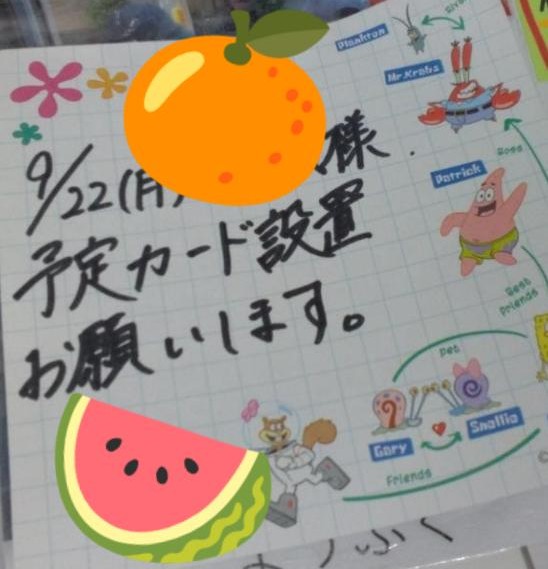 Plankton
Mr.Krabs
Boss
Patrick
9/22(月) 様
予定カード設置
お願いします。
Best
Friends
Pet
Gary
Smallia
Friends